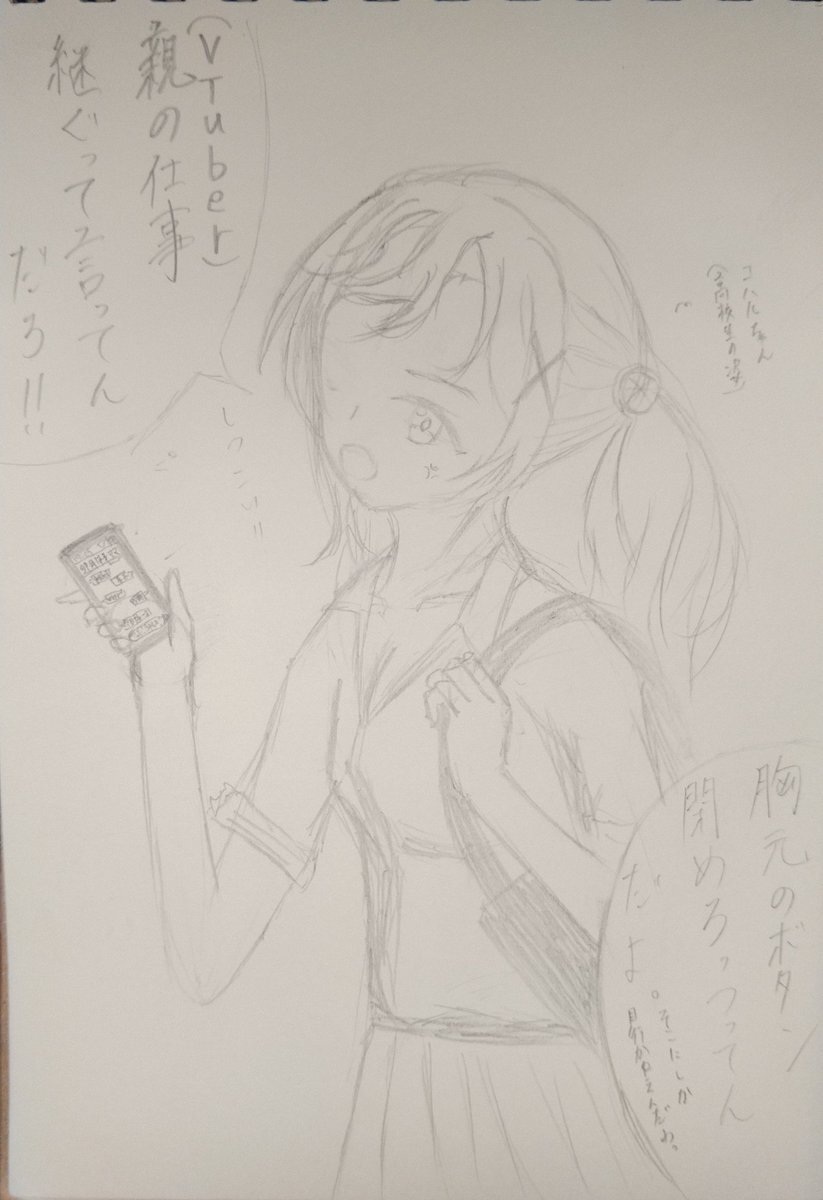 コハルちゃん
(高校生の姿)
(VTuber)
親の仕事
継ぐって言ってん
だろ!!
しつこい!!
胸元のボタン
閉めろっつってん
だよ。
そこにしか
目行かねえんだわ。